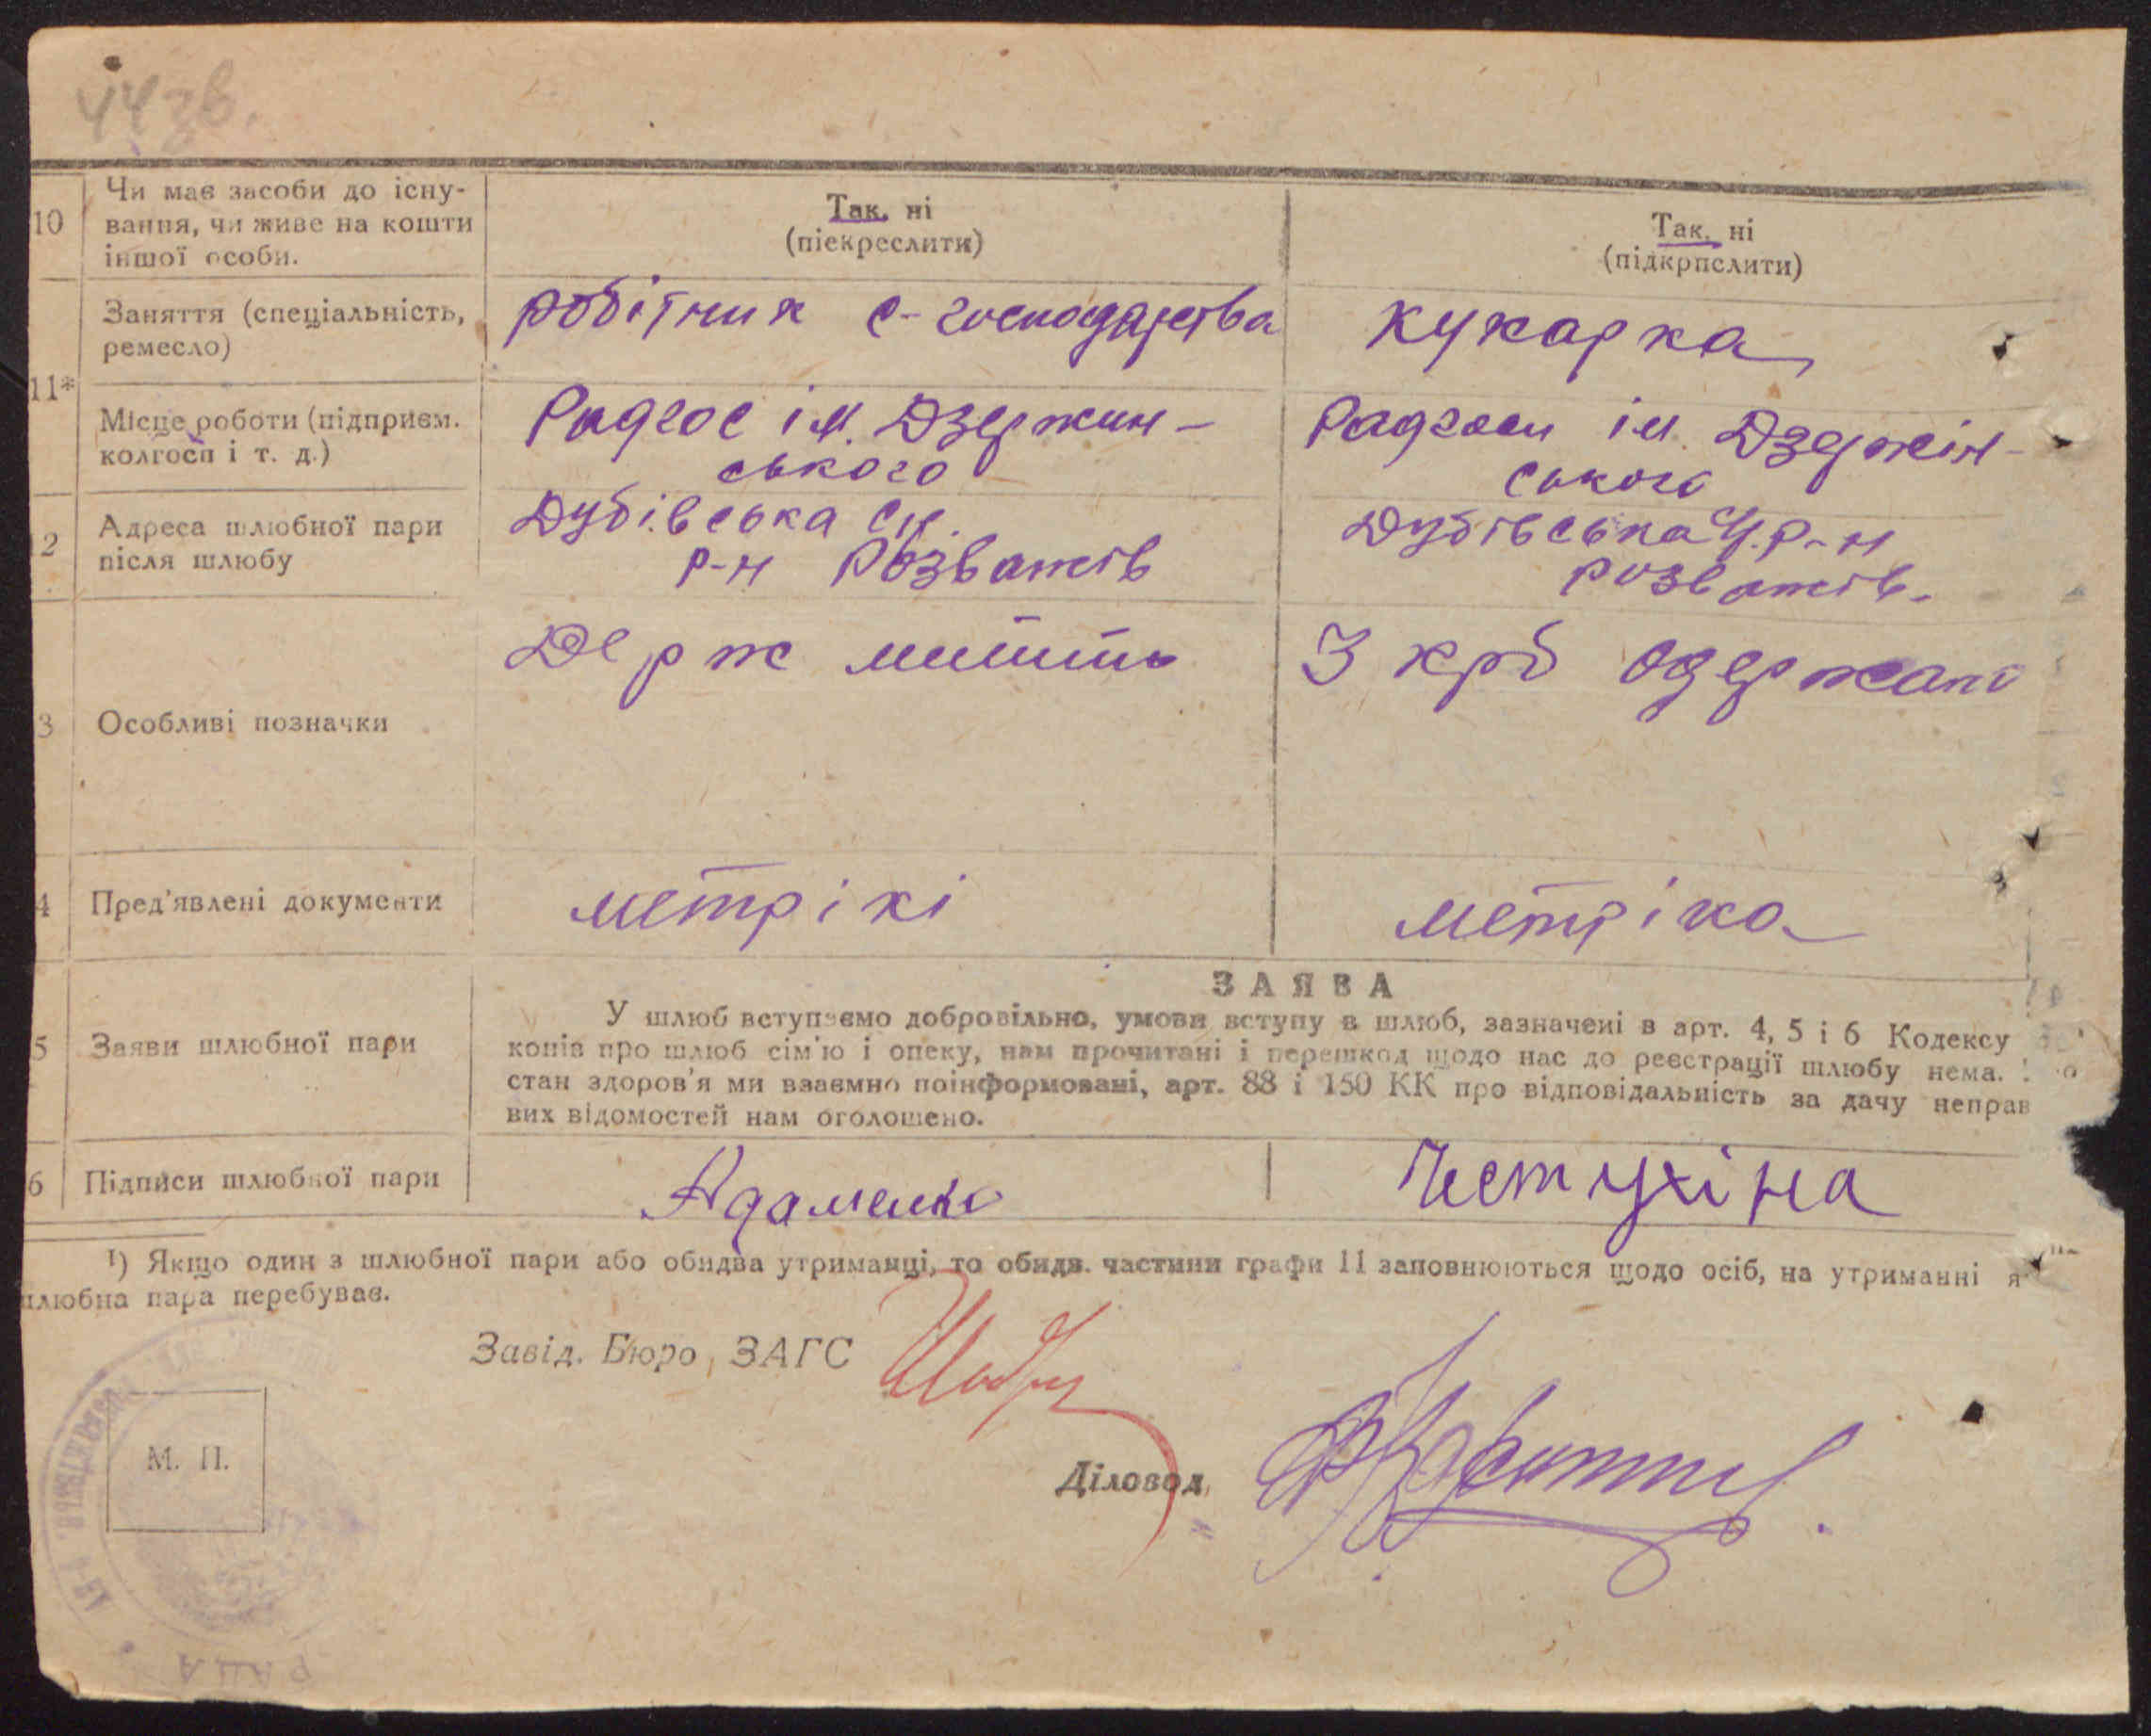 44зв.
10
Чи має засоби до існу-
вання, чи живе на кошти
іншої особи.
Так, ні
(піекреслити)
Так, ні
(підкрпслити)
11*
Заняття (спеціальність,
ремесло)
робітник с-господарства
кухарка
Місце роботи (підприєм.
колгосп і т. д.)
Радгос ім. Дзержин-
ського
Радгосп ім. Дзержін-
ського
2
Адреса шлюбної пари
після шлюбу
Дубівська с/р.
р-н Розважів
Дубівська р-н
розважів.
3
Особливі позначки
Держ мито
3 крб одержано
4
Пред'явлені документи
метрікі
метріка
5
Заяви шлюбної пари
ЗАЯВА
У шлюб вступаємо добровільно, умови вступу в шлюб, зазначені в арт. 4, 5 і 6 Кодексу
конів про шлюб сім'ю і опеку, нам прочитані і перешкод щодо нас до реєстрації шлюбу нема.
стан здоров'я ми взаємно поінформовані, арт. 88 і 150 КК про відповідальність за дачу неправ
вих відомостей нам оголошено.
6
Підписи шлюбної пари
Адаменко
Чистухіна
1) Якщо один з шлюбної пари або обидва утриманці, то обидв. частини графи 11 заповнюються щодо осіб, на утриманні я
шлюбна пара перебуває.
Завід. Бюро ЗАГС
Діловод
М. П.